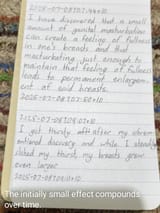 2025-07-08T07:44+10
I have discovered that a small
amount of genital masturbation
can create a feeling of fullness
in one's breasts and that
masturbating just enough to
maintain that feeling of fullness
leads to permanent enlargem-
ent of said breasts.
2025-07-08T07:50+10
2025-07-08T09:07+10
I got thirsty after my abrem-
entioned discovery and while I steadily
slated my thirst, my breasts grew
even larger.
2025-07-08T09:11+10
The initially small effect compounds
over time.